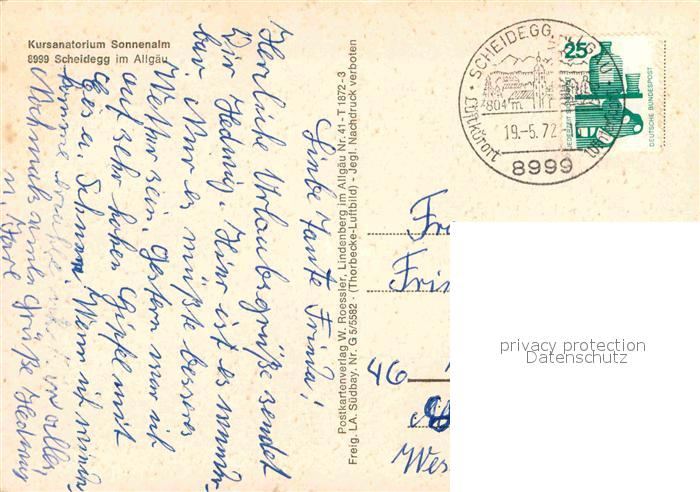 Kursanatorium Sonnenalm
8999 Scheidegg im Allgäu
Liebe Tante Frieda!
Herzliche Urlaubsgrüße sendet
Dir Hedwig. Hier ist es wunder-
bar. Nur es müßte besseres
Wetter sein. Gestern war ich
auf sehr hohen Gipfel mit
Eis u. Schnee. Wenn ich
Nochmals Grüße Hedwig
u.
Postkartenverlag W. Roessler, Lindenberg im Allgäu Nr. 41 - T 1872 - 3
Freig. LA. Südbay. Nr. G 5/5582 · (Thorbecke-Luftbild) - Jegl. Nachdruck verboten
SCHEIDEGG, ALLGÄU
804 m
19.-5.72
Luftkurort
8999
25
DEUTSCHE BUNDESPOST
JEDERZEIT SICHERHEIT
Fr
Fri
46
Wes
privacy protection
Datenschutz